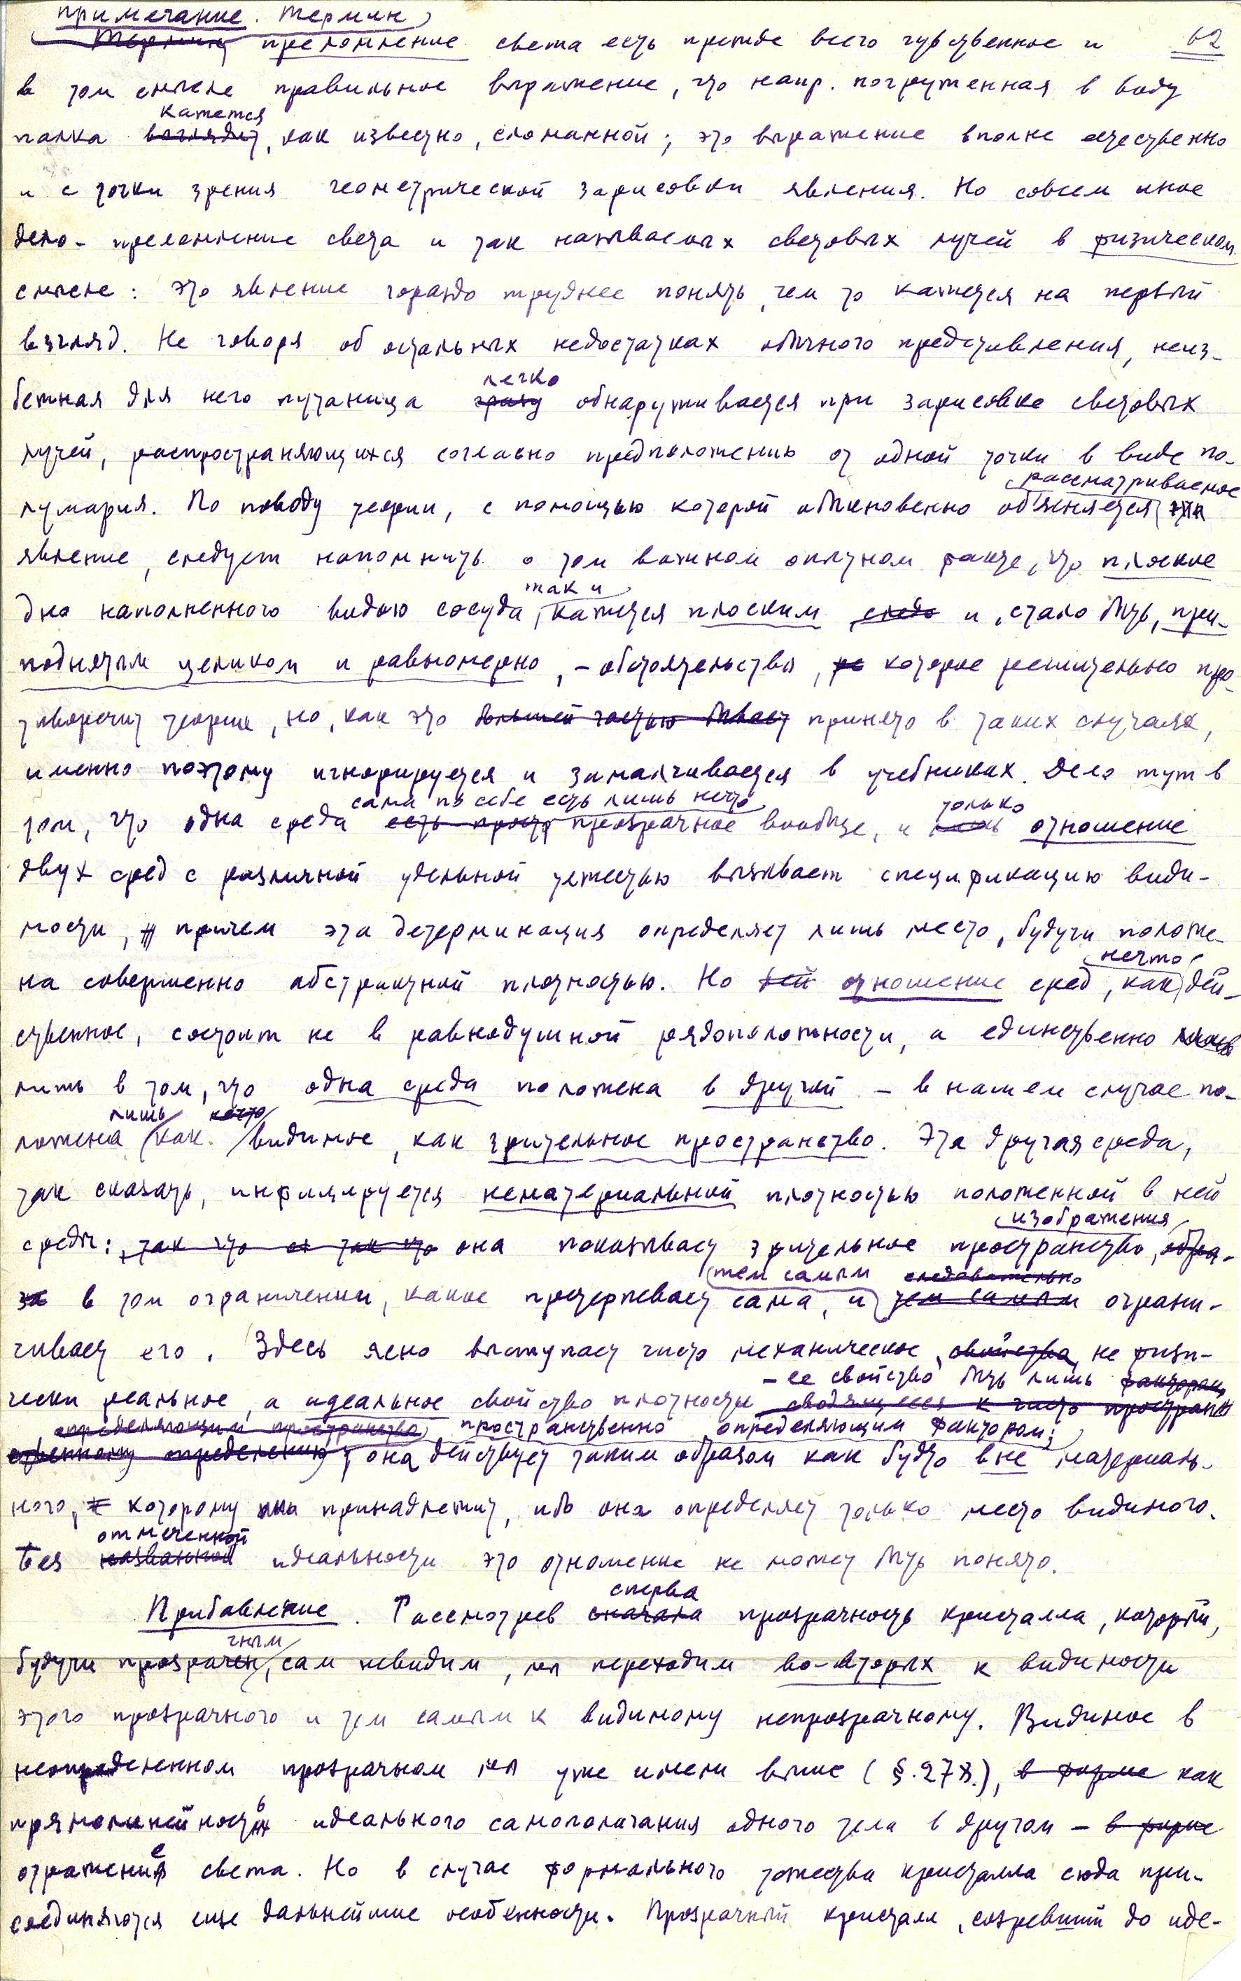 примечание. Термин
Термин преломление света есть прежде всего чувственное и 62
в том смысле правильное выражение, что напр. погруженная в воду
кажется
палка выглядит, как известно, сломанной; это выражение вполне естественно
и с точки зрения геометрической зарисовки явления. Но совсем иное
дело - преломление света и так называемых световых лучей в физическом
смысле: это явление гораздо труднее понять, чем то кажется на первый
взгляд. Не говоря об остальных недостатках обычного представления, неиз-
легко
бежная для него путаница сразу обнаруживается при зарисовке световых
лучей, распространяющихся согласно предположению от одной точки в виде по-
рассматриваемое
лушария. По поводу теории, с помощью которой обыкновенно объясняется это
явление, следует напомнить о том важном опытном факте, что плоское
так и
дно наполненного водою сосуда кажется плоским и, стало быть, при-
поднятым целиком и равномерно, - обстоятельство, которое решительно про-
тиворечит теории, но, как это большей частью бывает принято в таких случаях,
именно поэтому игнорируется и замалчивается в учебниках. Дело тут в
сама по себе есть лишь нечто только
том, что одна среда есть просто прозрачное вообще, и лишь отношение
двух сред с различной удельной тяжестью вызывает спецификацию види-
мости, причем эта детерминация определяет лишь место, будучи положе-
нечто
на совершенно абстрактной плотностью. Но отношение сред, как дей-
ственное, состоит не в равнодушной рядоположности, а единственно
лишь в том, что одна среда положена в другой - в нашем случае по-
лишь нечто
ложена как видимое, как зрительное пространство. Эта другая среда,
так сказать, инфицируется нематериальной плотностью положенной в ней
изображения
среды: так что она показывает зрительное пространство обра-
тем самым следовательно
за в том ограничении, какое претерпевает сама, и тем самым ограни-
чивает его. Здесь ясно выступает чисто механическое свойство, не физи-
- ее свойство быть лишь фактором
чески реальное, а идеальное свойство плотности сводящееся к чисто простран
определяющим пространство пространственно определяющим фактором;
ственному определению; она действует таким образом как будто вне материаль-
ного, которому она принадлежит, ибо она определяет только место видимого.
отмеченной
Без названной идеальности это отношение не может быть понято.
сперва
Прибавление. Рассмотрев сначала прозрачность кристалла, который,
чным
будучи прозрачен, сам невидим, мы переходим во-вторых к видимости
этого прозрачного и тем самым к видимому непрозрачному. Видимое в
неопределенном прозрачном мы уже имели выше (§. 278.), в форме как
прямолинейность идеального самополагания одного тела в другом - в форме
отражение света. Но в случае формального тожества кристалла сюда при-
соединяются еще дальнейшие особенности. Прозрачный кристалл, созревший до иде-